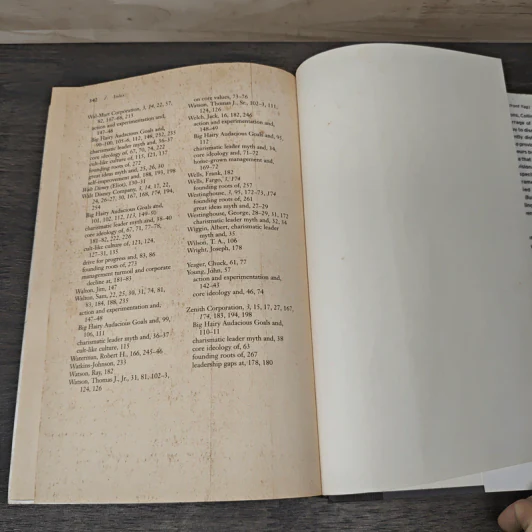 Index
Wal-Mart Corporation, 3,
action and experimentation and,
147-48
Big Hairy Audacious Goals and,
charismatic leader myth and, 36-37
core ideology of, 67, 70, 74, 222
cult-like culture of, 115, 121, 137
founding roots of, 272
great ideas myth and, 25, 26, 30
self-improvement and, 188, 191, 198
Walt Disney (Eliot), 130-31
Walt Disney Company, 3, 14, 17, 22,
24, 26-27, 30, 167, 168, 174, 194,
Big Hairy Audacious Goals and,
charismatic leader myth and, 38-40
core ideology of, 67, 71, 77-78,
81-82, 222, 226
cult-like culture of, 121, 124,
127-31, 135
drive for progress and, 83, 86
founding roots of, 273
management turmoil and corporate
decline at, 181-83
Walton, Jim, 147
Walton, Sam, 22, 25, 30, 31, 74, 81,
93, 184, 188, 235
action and experimentation and,
147-48
Big Hairy Audacious Goals and, 99,
106, 111
charismatic leader myth and, 36-37
cult-like culture, 115
Waterman, Robert H., 166, 245-46
Watkins-Johnson, 235
Watson, Ray, 182
Watson, Thomas J., Jr., 31, 81, 102-3,
124, 126
on core values, 73-76
Watson, Thomas J., Sr., 102-3, 111,
124, 126
Welch, Jack, 16, 182, 246
action and experimentation and,
148-49
Big Hairy Audacious Goals and, 95,
112
charismatic leader myth and, 34
core ideology and, 71-72
home-grown management and,
169-72
Wells, Frank, 182
Wells, Fargo, 3, 174
founding roots of, 257
Westinghouse, 3, 95, 172-73, 174
founding roots of, 261
great ideas myth and, 27-29
Westinghouse, George, 28-29, 31, 172
charismatic leader myth and, 32, 34
Wiggin, Albert, charismatic leader
myth and, 35
Wilson, T. A., 106
Wright, Joseph, 178
Yeager, Chuck, 61, 77
Young, John, 37
action and experimentation and,
142-43
core ideology and, 46, 74
Zenith Corporation, 3, 15, 17, 27, 167,
174, 183, 194, 198
Big Hairy Audacious Goals and,
110-11
charismatic leader myth and, 38
core ideology of, 63
founding roots of, 267
leadership gaps at, 178, 180